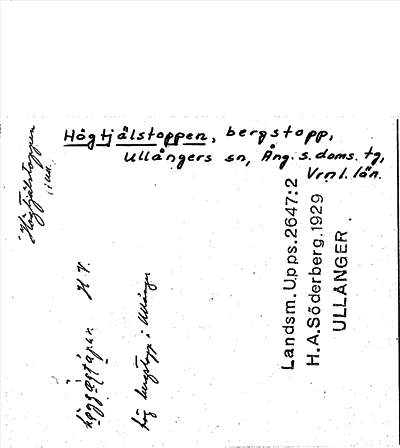 Högtjälstoppen, bergstopp,
Ullångers sn, Ång. s. doms. tg,
Vrnl. län.
Högtjälstoppen
H. V.
hög bergstopp i Ullånger
Landsm. Upps. 2647:2
H. A. Söderberg, 1929
ULLÅNGER